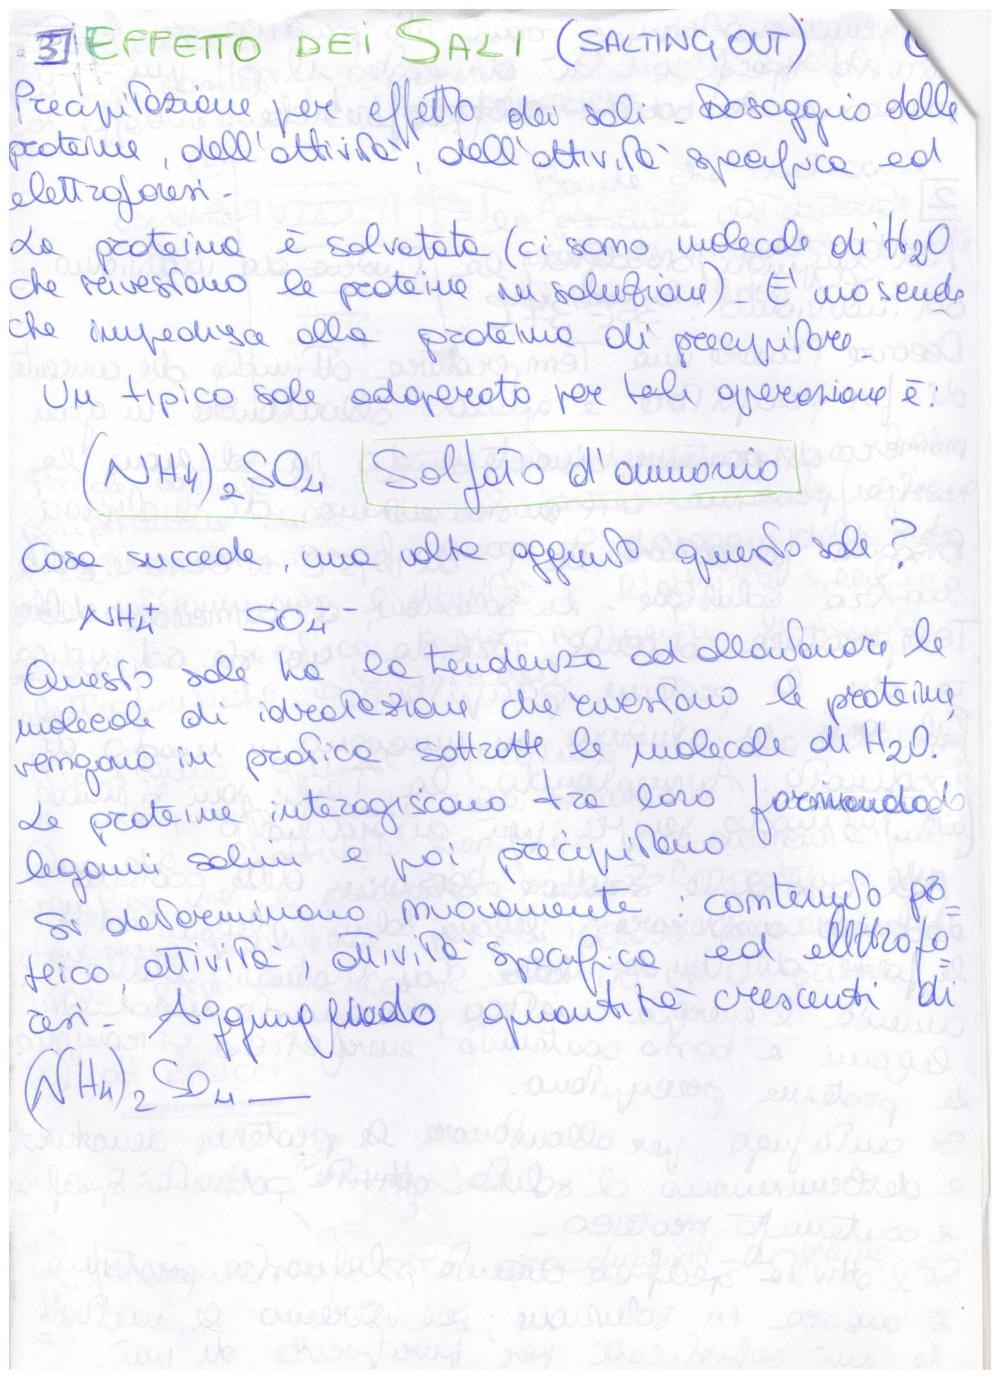 3] EFFETTO DEI SALI (SALTING OUT)
Precipitazione per effetto dei sali - Dosaggio delle
proteine, dell'attività, dell'attività specifica ed
elettroforesi -
La proteina è solvatata (ci sono molecole di H2O
che rivestono le proteine in soluzione) - E' una sende
che impedisca alla proteina di precipitare -
Un tipico sale adoperato per tali operazione è:
(NH4)2SO4 Solfato d'ammonio
Cosa succede, una volta aggiunto questo sale?
NH4+ SO4--
Questo sale ha la tendenza ad allontanare le
molecole di idratazione che rivestono le proteine,
vengono in pratica sottratte le molecole di H2O.
Le proteine interagiscono tra loro formandado
legami salini e poi precipitano
Si determinano nuovamente: contenuto pro=
teico, attività attività specifica ed elettrofo=
resi - Aggiungendo quantità crescenti di
(NH4)2SO4 —